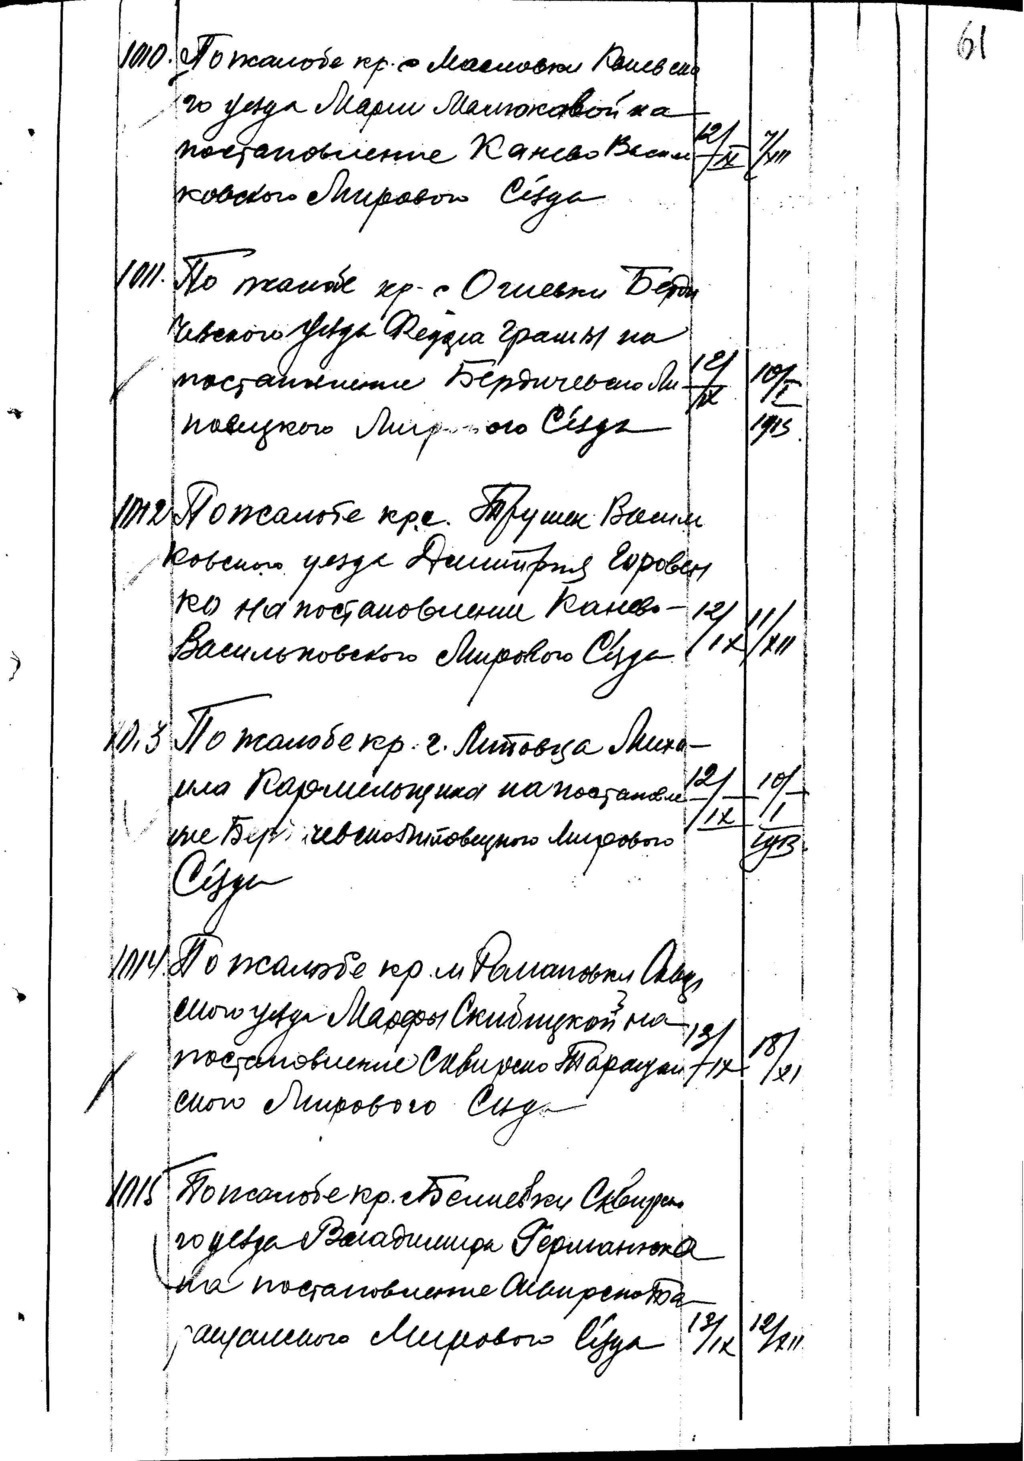 61
1010. По жалобе кр. с Масловки Каневско
го уезда Марии Малюковой на
постановление Канево Василь 12/IX 7/XII
ковского Мирового Съезда
1011. По жалобе кр. с Огиевки Берди
чевского уезда на
постановление Бердичевско Ли 12/IX 10/I
повецкого Мирового Съезда 1913
1012 По жалобе кр. с. Трушек Василь
ковского уезда Димитрия Горовен
ко на постановление Канево- 12/IX 11/XII
Васильковского Мирового Съезда
1013 По жалобе кр. г. Липовца Миха-
ила на постановле 12/IX 10/I
ние Бердичевско Липовецкого Мирового 1913
Съезда
1014 По жалобе кр. м Романовки Сквир
ского уезда Марфы Скибицкой на
постановление Сквирско Таращан 13/IX 18/XI
ского Мирового Съезда
1015 По жалобе кр. с Белиевки Сквирско
го уезда Владимира Германюка
на постановление Сквирско Та
ращанского Мирового Съезда 13/IX 12/XII